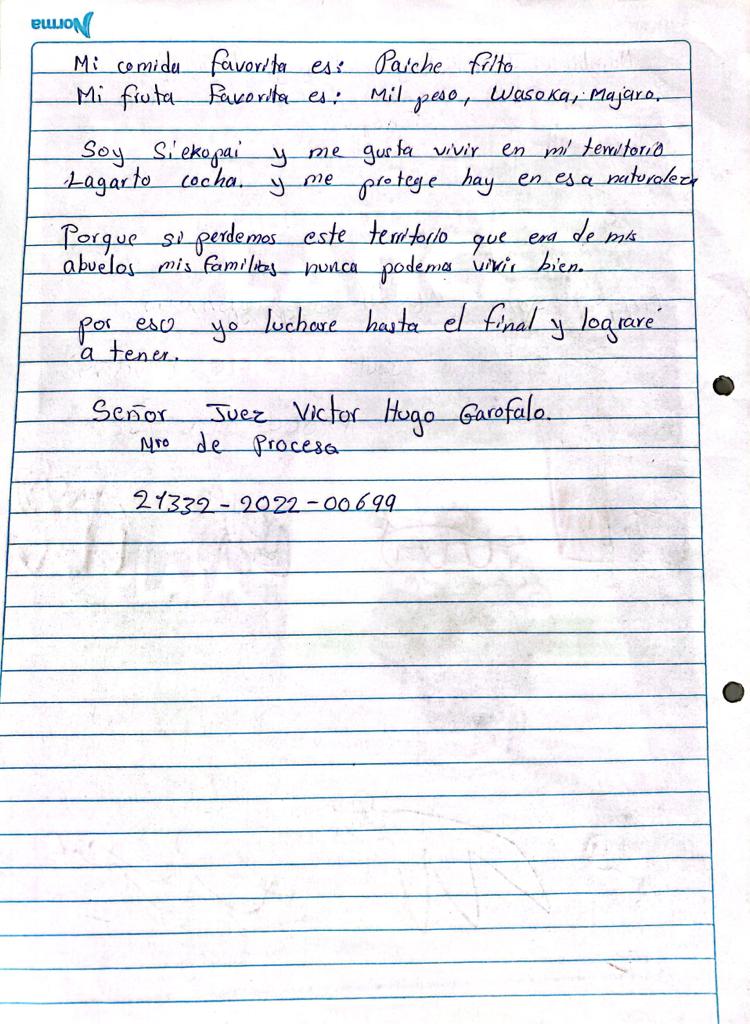 Norma
Mi comida favorita es: Paiche frito
Mi fruta Favorita es: Mil peso, Wasoka, Majaro.
Soy Siekopai y me gusta vivir en mi territorio
Lagarto cocha. y me protege hay en esa naturaleza
Porque si perdemos este territorio que era de mis
abuelos mis familias nunca podemos vivir bien.
por eso yo luchare hasta el final y lograre
a tener.
Señor Juez Victor Hugo Garofalo.
Nro de Procesa
21332-2022-00699